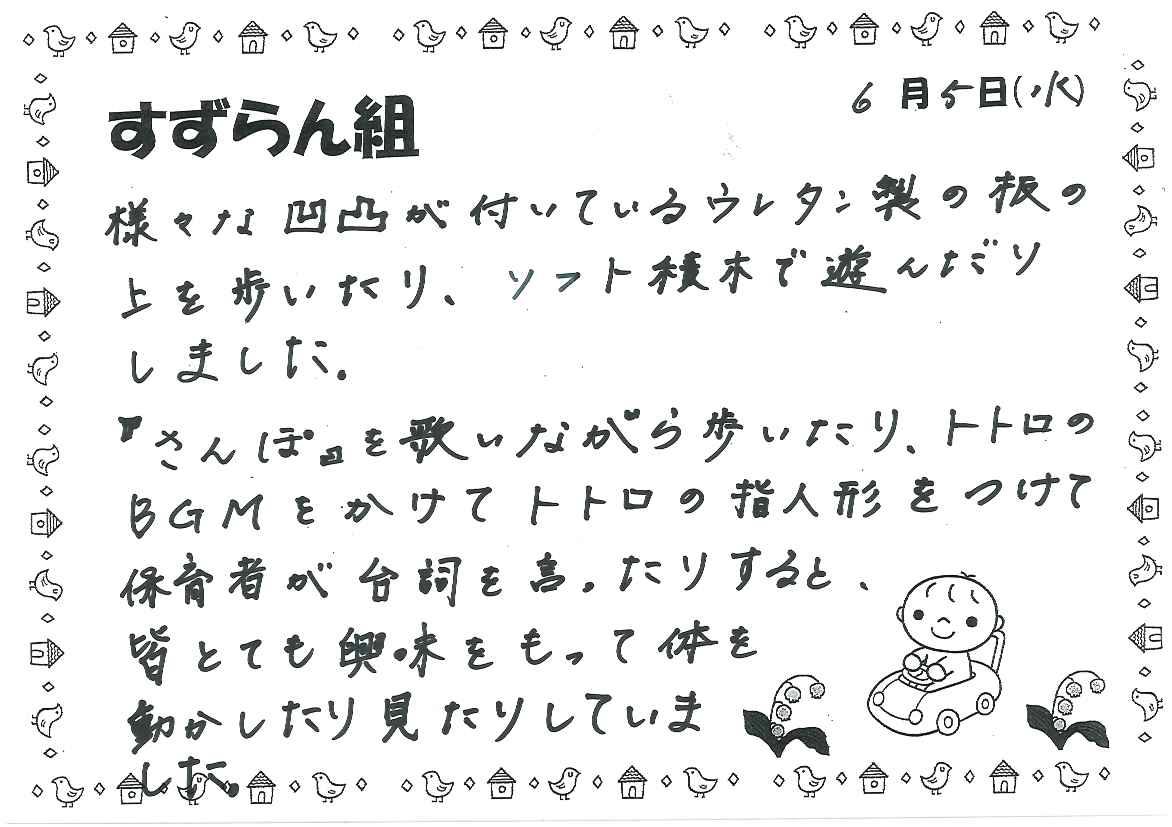 すずらん組
6月5日(水)
様々な凹凸が付いているウレタン製の板の
上を歩いたり、ソフト積木で遊んだり
しました。
『さんぽ』を歌いながら歩いたり、トトロの
BGMをかけてトトロの指人形をつけて
保育者が台詞を言ったりすると、
皆とても興味をもって体を
動かしたり見たりしていま
した。